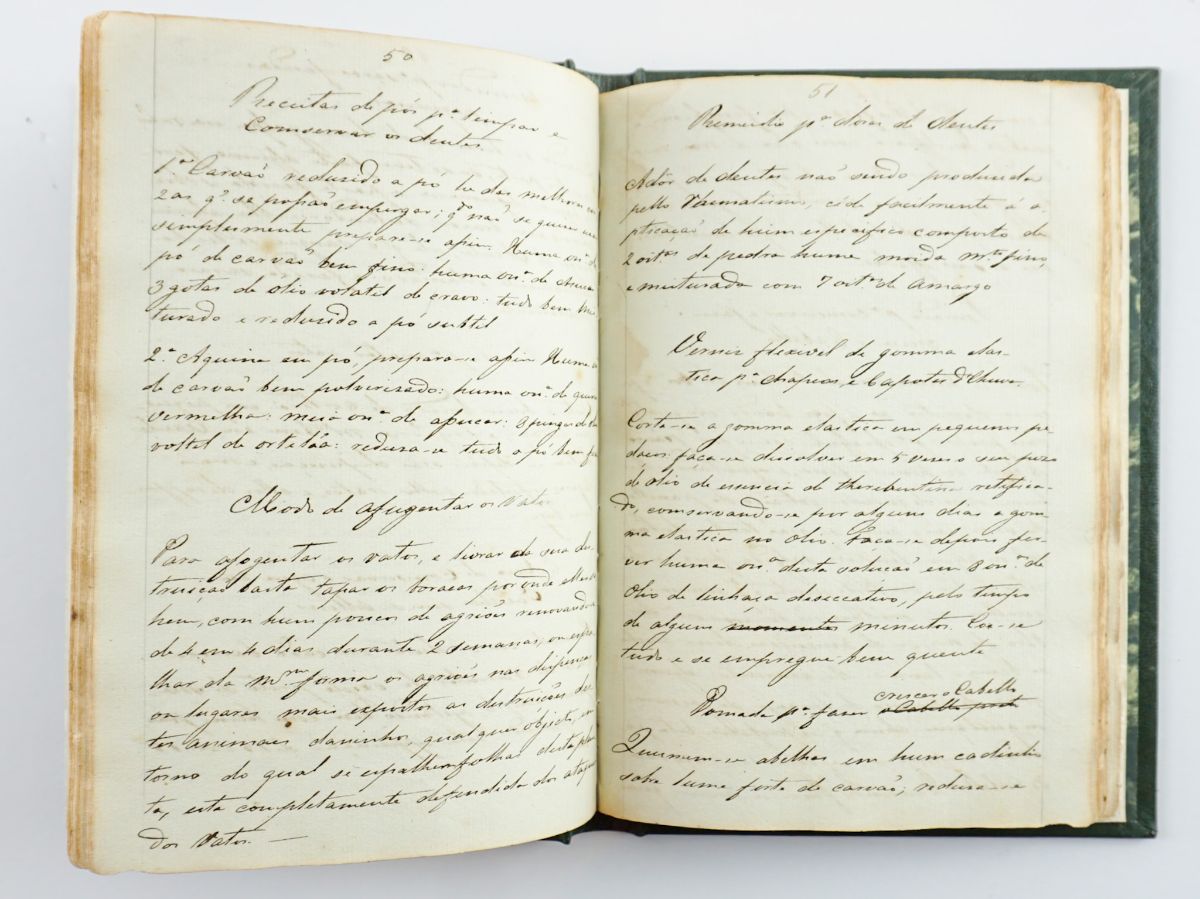 50
Receitas de pós pª limpar e
Comservar os dentes
1ª Carvaõ redusido a pó he das melhores cou
zas q̃ se possaõ empurgar; q.do naõ se queira uzar
simplesmente prepara-se assim. Huma onª de
pó de carvaõ bem fino: huma onª de assucar
3 gotas de olio volatel de cravo: tudo bem mis
turado e redusido a pó subtil
2ª Aquina em pó, prepara-se assim Huma onª
de carvaõ bem pulverizado: huma onª de quina
vermelha: meia onª de assucar: 8 pingas de olio
voltel de ortelãa: redusa-se tudo a pó bem fino
Modo de afugentar os Ratos
Para afogentar os ratos, e livrar da sua des-
truiçaõ basta tapar os boracos por onde elles
hem, com hum poucos de agriões renovando
de 4 em 4 dias durante 2 semanas, ou espa
lhar da mma forma os agriões nas dispensas
ou lugares mais expostos as destruiсões des
tes animaes daninhos, qualquer objecto, em
torno do qual se espalhem folhas desta plan
ta, esta completamente defendida dos ataques
dos Ratos. —
51
Remedio pª dores de dentes
Ador de dentes naõ sendo produsida
pello Rhumatismo, céde facilmente á a-
plicaçaõ de hum especifico composto de
2 oitªs de pedra hume moida mto fino,
e misturada com 7 oitªs de Amargo
Verniz flexivel de gomma elas-
tica pª chapeos, e Capotes d'Chuva.
Corta-se a gomma elastica em pequenos pe
daços faça-se disolver em 5 vezes o seu pezo
de olio de essencia de therebentina retifica-
do, comservando-se por alguns dias a gom-
ma elastica no olio. Faça-se depois fer-
ver huma onª desta soluçaõ em 8 onªs de
Olio de linhaça desseccativo, pelo tempo
de alguns momentos minutos. Coa-se
tudo e se empregue bem quente
Pomada pª fazer crescer o Cabello
o Cabello preto
Queimem-se abelhas em hum cadinho
sobre lume forte de carvaõ; redusa-se